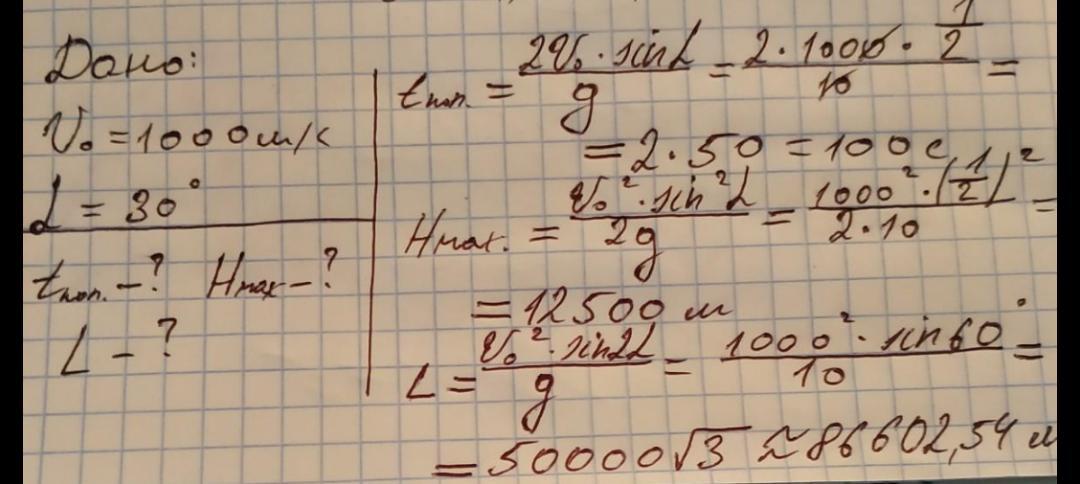 Дано:
V₀ = 1000 м/с
α = 30°
tпол. – ? Hmax – ?
L – ?
tпол. = (2V₀ · sinα)/g = (2 · 1000 · 1/2)/10 =
= 2 · 50 = 100 с
Hmax. = (V₀² · sin²α)/(2g) = (1000² · (1/2)²)/(2 · 10) =
= 12500 м
L = (V₀² · sin2α)/g = (1000² · sin60°)/10 =
= 50000√3 ≈ 86602,54 м